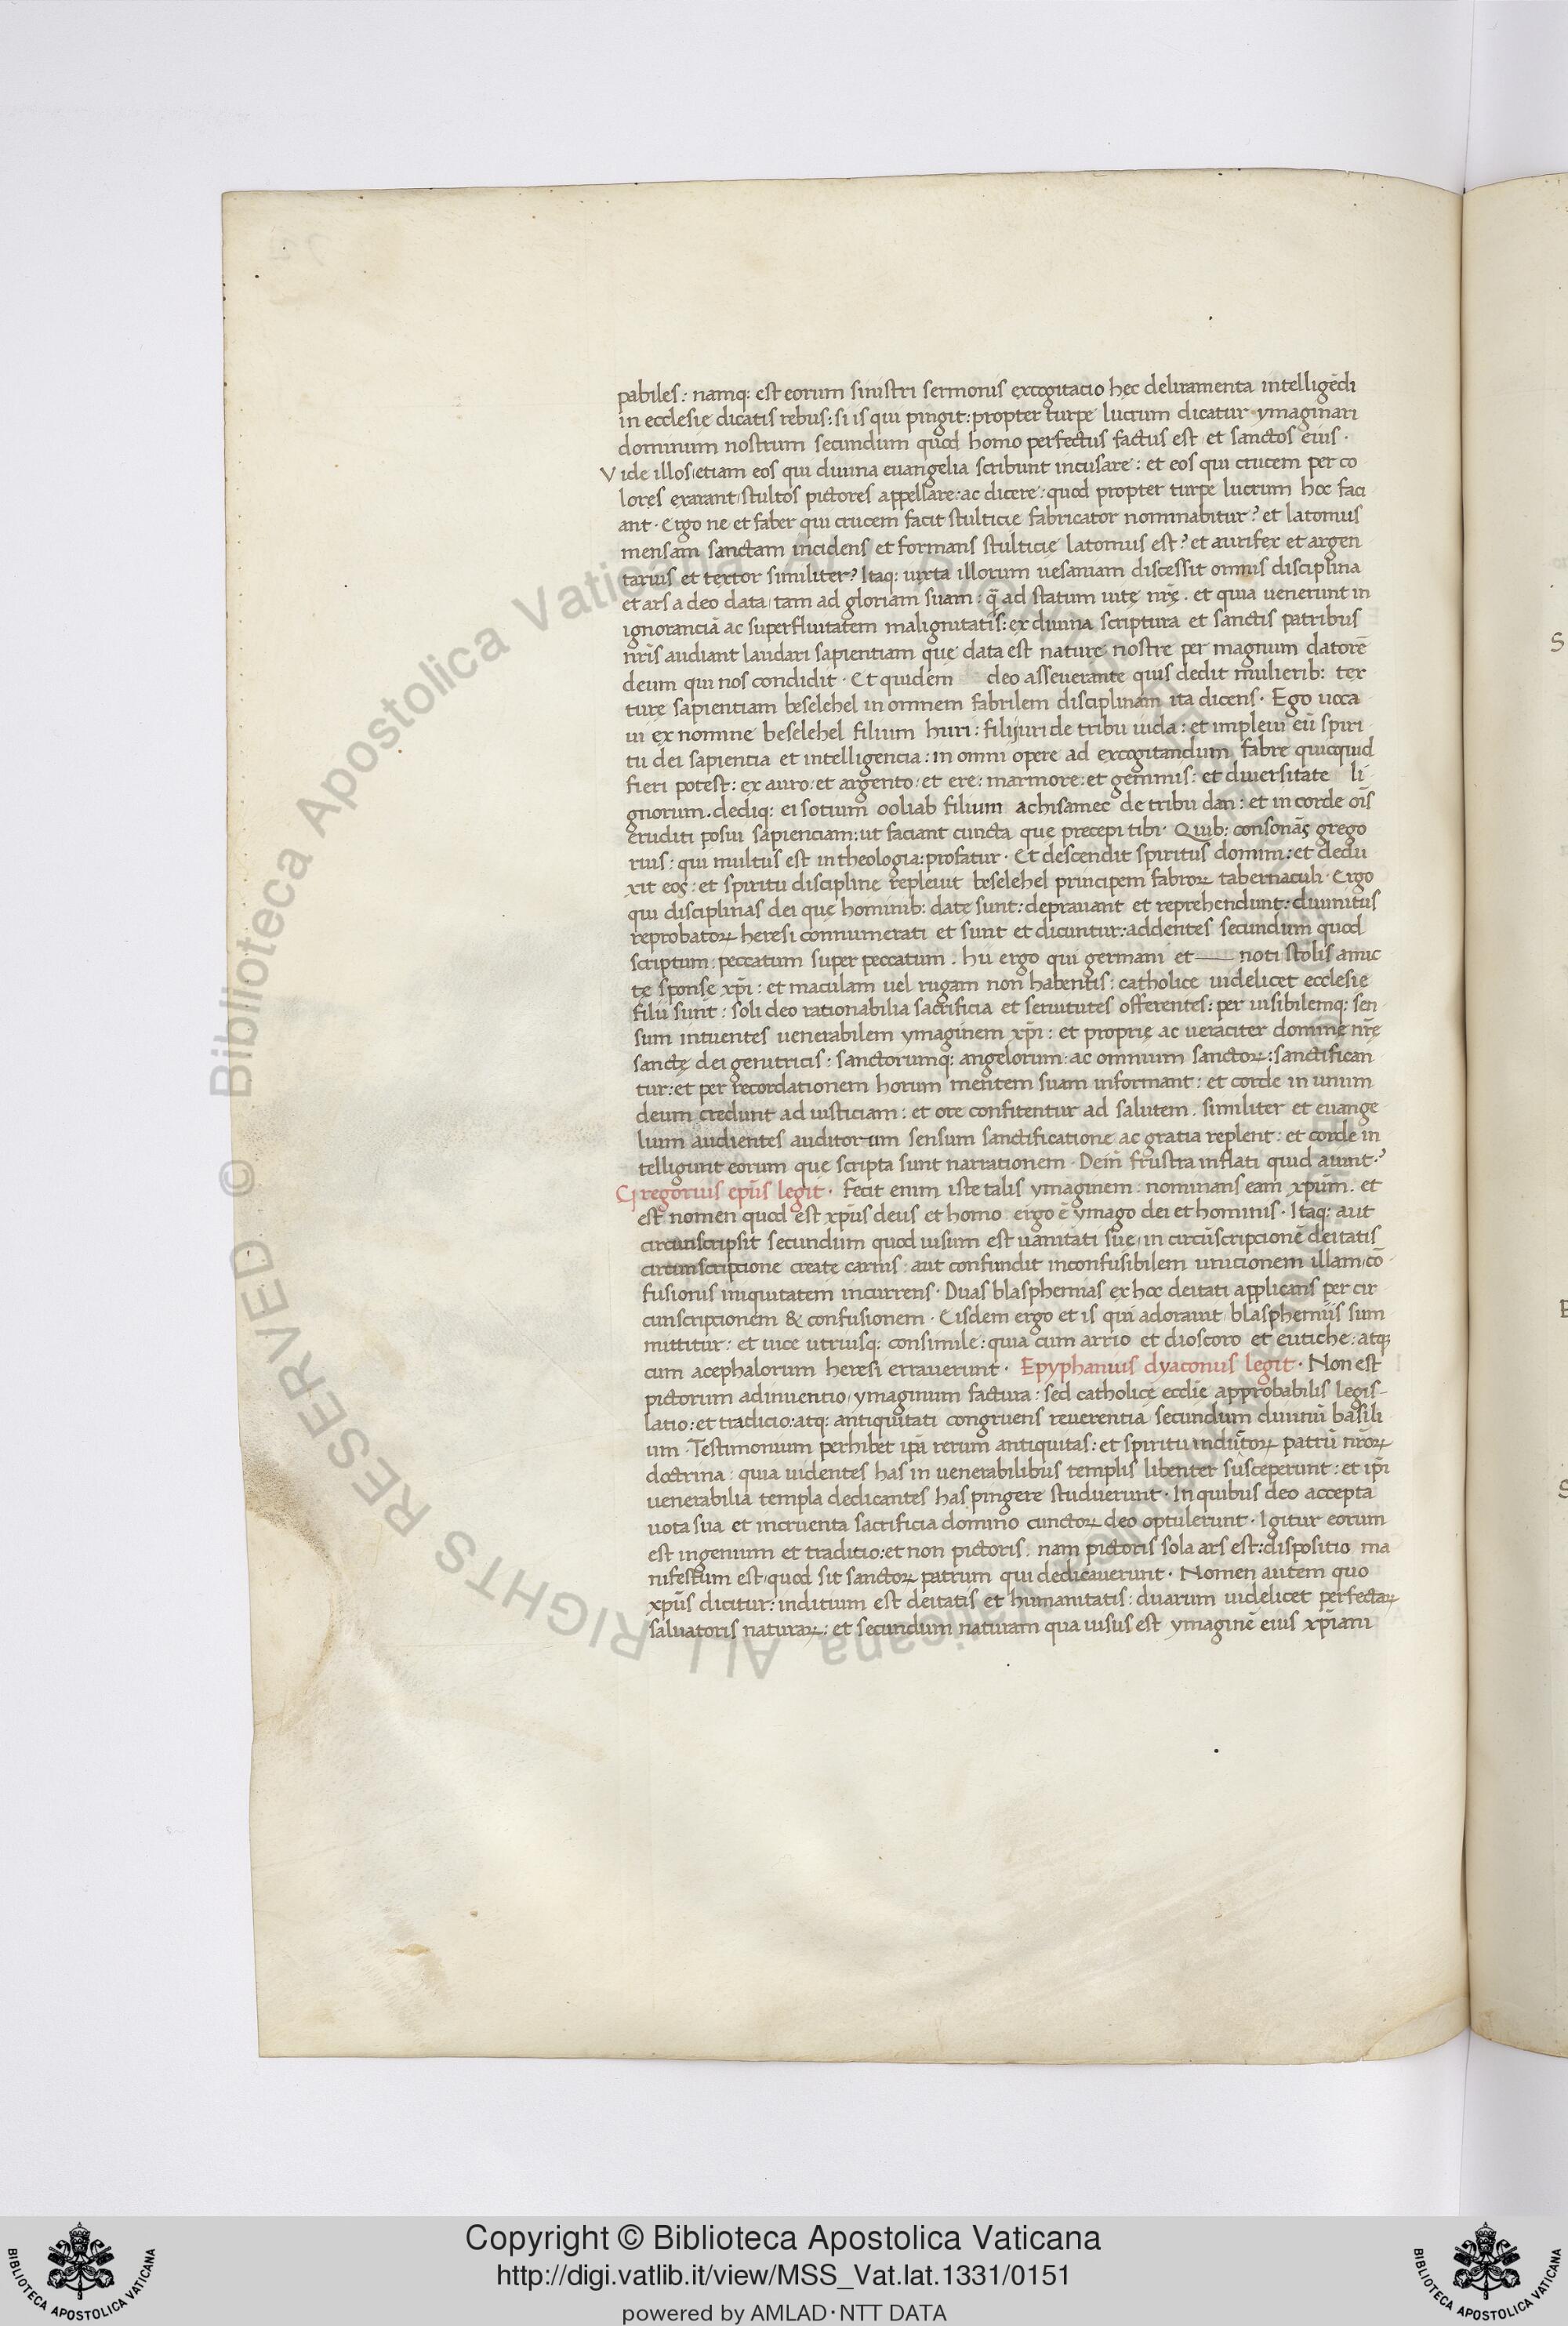 pabiles : namq: est eorum sinistri sermonis excogitacio hęc deliramenta intelligēdi
in ecclesię dicatis rebus : si is qui pingit : propter turpe lucrum dicatur ymaginari
dominum nostrum secundum quod homo perfectus factus est et sanctos eius .
Vide illos etiam eos qui diuina euangelia scribunt incusare : et eos qui crucem per co
lores exarant stultos pictores appellare : ac dicere : quod propter turpe lucrum hoc faci
ant . Ergo ne et faber qui crucem facit stulticię fabricator nominabitur ? et latomus
mensam sanctam incidens et formans stulticię latomus est ? et aurifex et argen
tarius et textor similiter ? Itaq: iuxta illorum uesaniam discessit omnis disciplina
et ars a deo data tam ad gloriam suam : q̄ ad statum uitę nrę̄ . et quia uenerunt in
ignoranciā ac superfluitatem malignitatis : ex diuina scriptura et sanctis patribus
nrīs audiant laudari sapientiam quę data est naturę nostrę per magnum datorē
deum qui nos condidit . Et quidem deo asseuerante quis dedit mulierib: tex
turę sapientiam beselehel in omnem fabrilem disciplinam ita dicens . Ego uoca
ui ex nomine beselehel filium huri : filij uri de tribu iuda : et impleui eū spiri
tu dei sapiencia et intelligencia : in omni opere ad excogitandum fabre quicquid
fieri potest : ex auro : et argento : et ere : marmore : et gemmis : et diuersitate li
gnorum . dediq: ei socium ooliab filium achisamec de tribu dan : et in corde oīs
eruditi posui sapienciam : ut faciant cuncta que precepi tibi . Quib: consonās grego
rius : qui multus est in theologia : profatur . Et descendit spiritus domini : et dedu
xit eos : et spiritu disciplinę repleuit beselehel principem fabroꝝ tabernaculi . Ergo
qui disciplinas dei quę hominib: datę sunt : deprauant et reprehendunt : diuinitus
reprobatoꝝ heresi connumerati et sunt et dicuntur : addentes secundum quod
scriptum . peccatum super peccatum . hii ergo qui germani et —— noti stolis amic
tę sponsę xp̄i : et maculam uel rugam non habentis : catholicę uidelicet ecclesię
filii sunt : soli deo rationabilia sacrificia et seruitutes offerentes : per uisibilemq: sen
sum intuentes uenerabilem ymaginem xp̄i : et proprię ac ueraciter dominę nrę̄
sanctę dei genitricis : sanctorumq: angelorum : ac omnium sanctoꝝ : sanctifican
tur : et per recordationem horum mentem suam informant : et corde in unum
deum credunt ad iusticiam : et ore confitentur ad salutem . similiter et euange
lium audientes auditorum sensum sanctificatione ac gratia replent : et corde in
telligunt eorum que scripta sunt narrationem . Dein̄ frustra inflati quid aiunt ?
Gregorius ep̄us legit . Fecit enim iste talis ymaginem : nominans eam xpūm . et
est nomen quod est xpūs deus et homo . ergo ē ymago dei et hominis . Itaq: aut
circunscripsit secundum quod uisum est uanitati suę in circūscripcionē deitatis
circumscripcione creatę carnis : aut confundit inconfusibilem unicionem illam cō
fusionis iniquitatem incurrens . Duas blasphemias ex hoc deitati applicans per cir
cunscripcionem & confusionem . Eisdem ergo et is qui adorauit blasphemiis sum
mittitur : et uice utriusq: consimile : quia cum arrio et dioscoro et eutiche : atq:
cum acephalorum heresi errauerunt . Epyphanius dyaconus legit . Non est
pictorum adinuentio ymaginum factura : sed catholicę ecclię approbabilis legis-
latio : et tradicio : atq: antiquitati congruens reuerentia secundum diuinū basili
um . Testimonium perhibet ip̄a rerum antiquitas : et spiritu indūtoꝝ patrū nrōꝝ
doctrina : quia uidentes has in uenerabilibus templis libenter susceperunt : et ip̄i
uenerabilia templa dedicantes has pingere studuerunt . In quibus deo accepta
uota sua et incruenta sacrificia domino cunctoꝝ deo optulerunt . Igitur eorum
est ingenium et traditio : et non pictoris . nam pictoris sola ars est : dispositio ma
nifestum est quod sit sanctoꝝ patrum qui dedicauerunt . Nomen autem quo
xpūs dicitur : inditium est deitatis et humanitatis : duarum uidelicet perfectaꝝ
saluatoris naturaꝝ : et secundum naturam qua uisus est ymaginē eius xpīani
Copyright © Biblioteca Apostolica Vaticana
http://digi.vatlib.it/view/MSS_Vat.lat.1331/0151
powered by AMLAD·NTT DATA
BIBLIOTECA APOSTOLICA VATICANA
BIBLIOTECA APOSTOLICA VATICANA
© Biblioteca Apostolica Vaticana ALL RIGHTS RESERVED